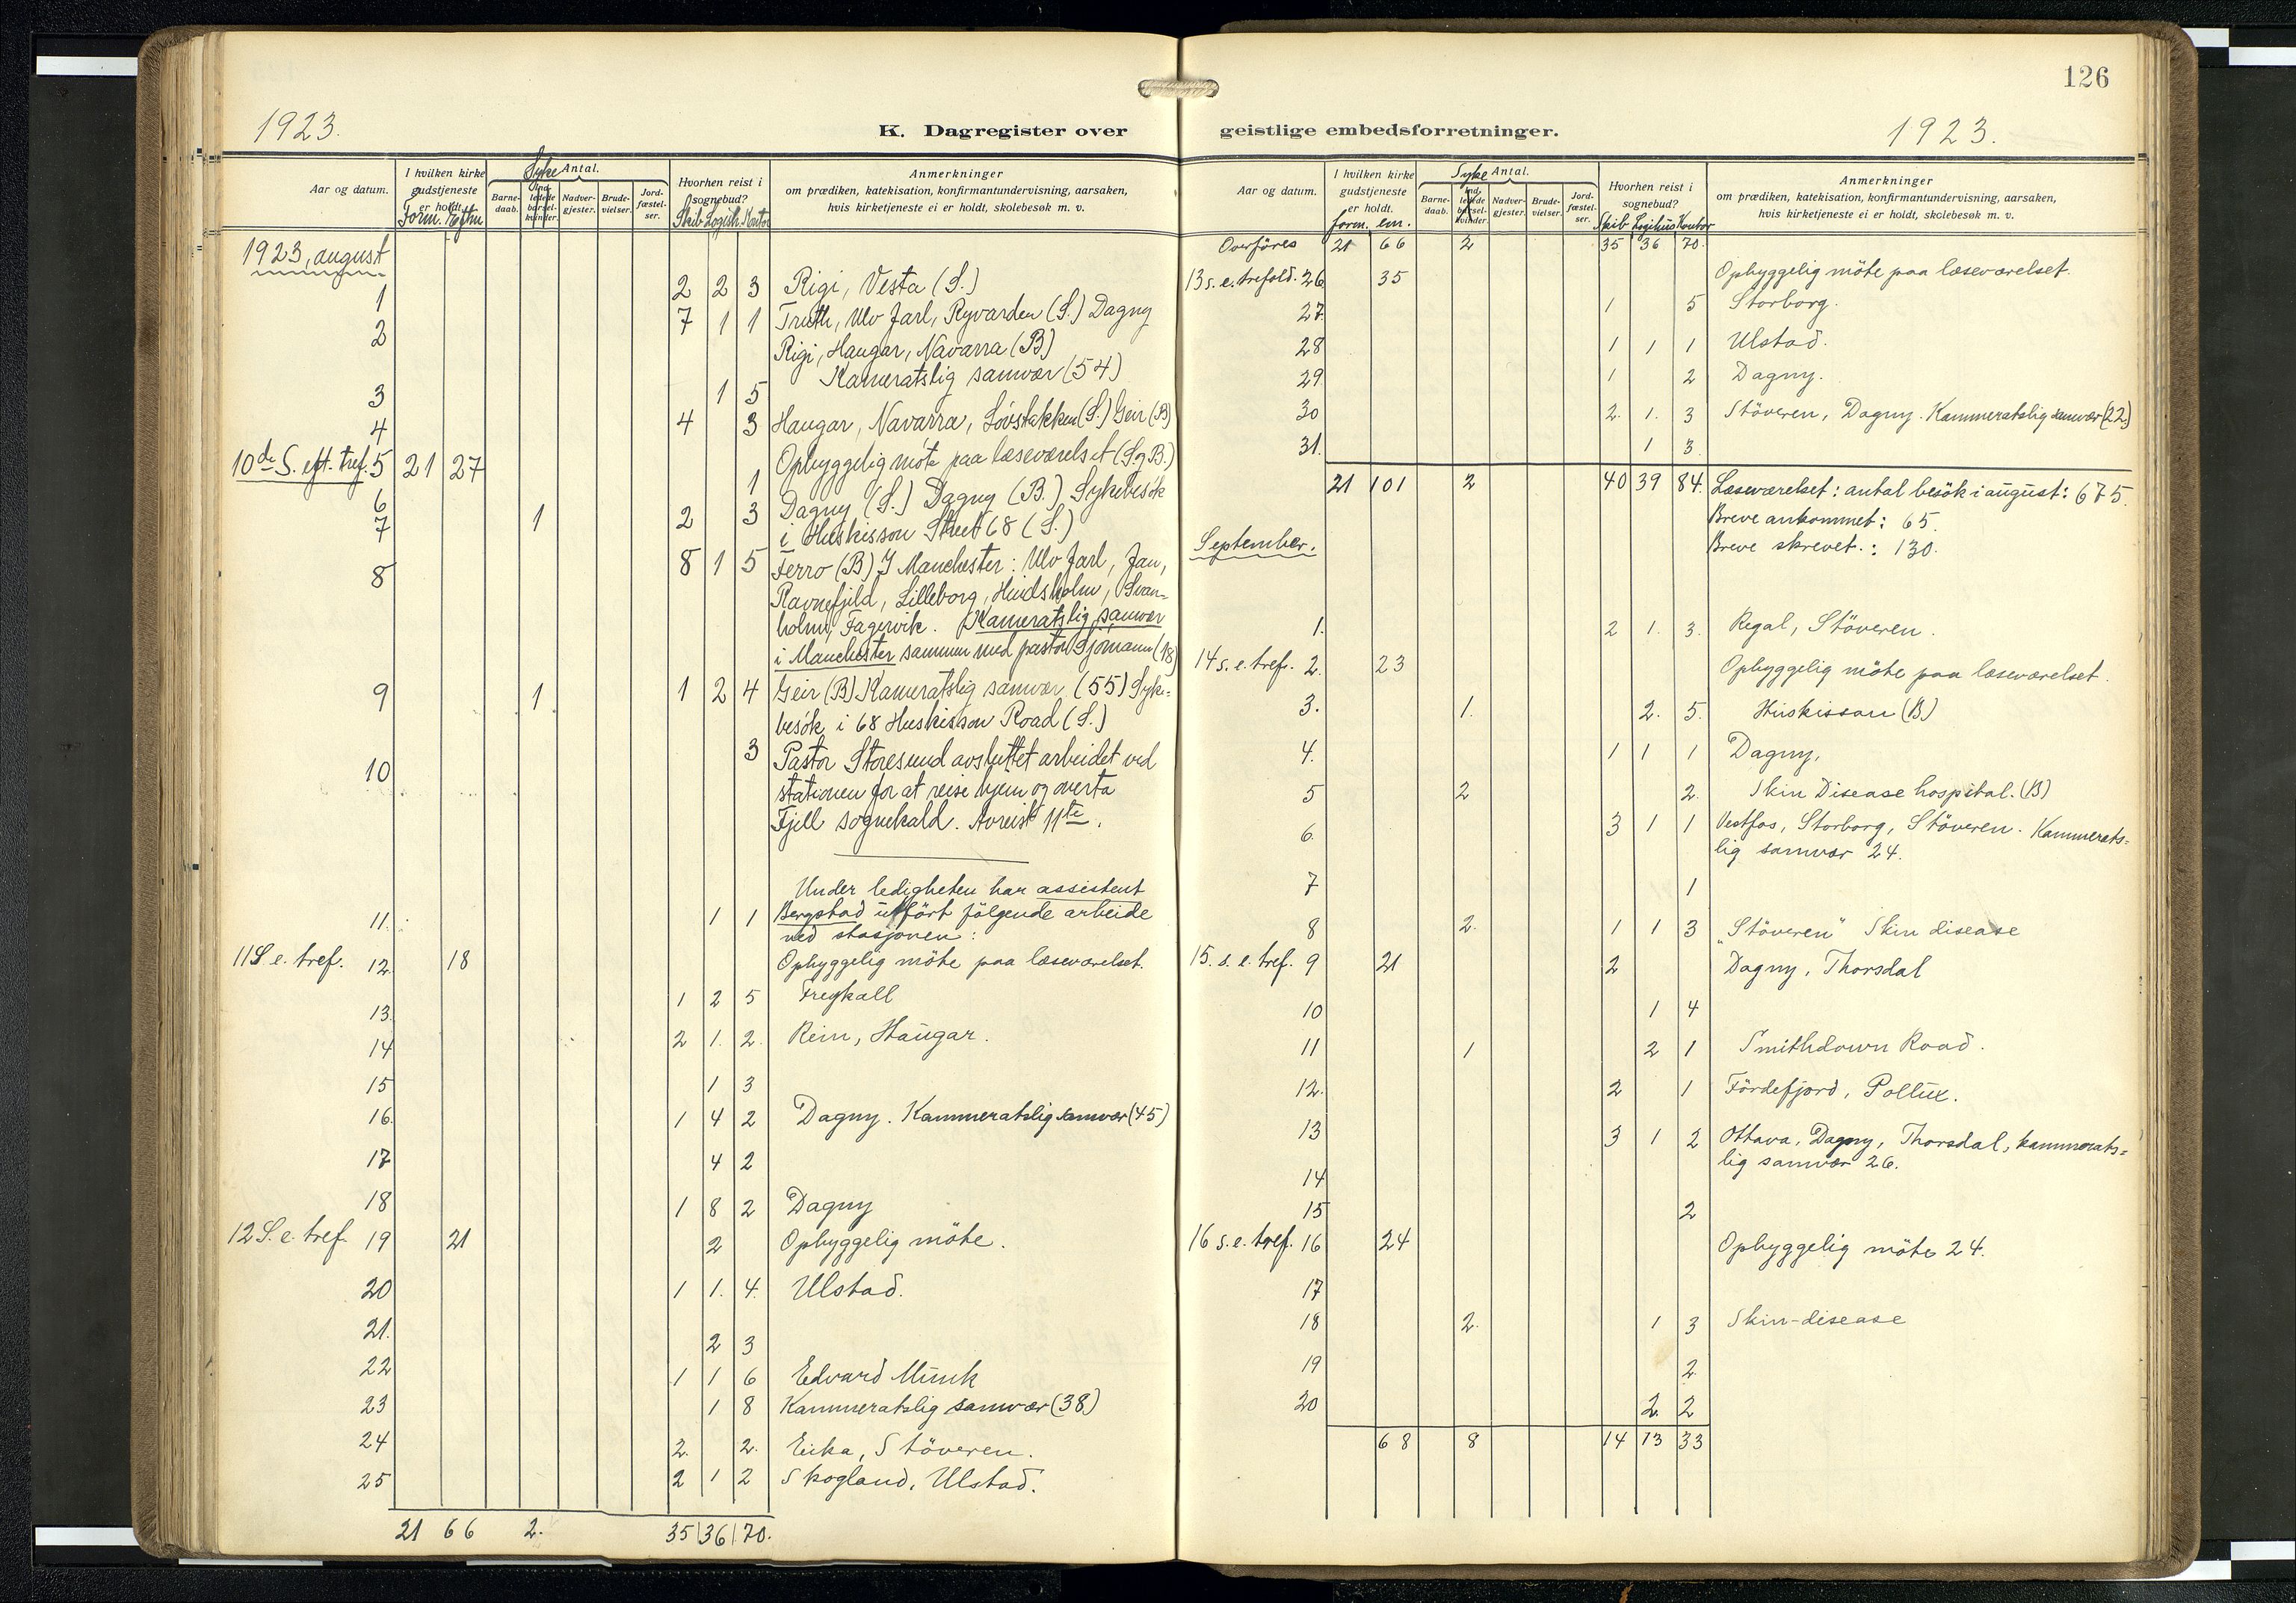 126
1923.
K. Dagregister over
Aar og datum. I hvilken kirke gudstjeneste er holdt. Form. Eftm Syke Antal. Barnedaab. Indledede barselkvinder. Nadvergjester. Brudevielser. Jordfæstelser. Hvorhen reist i sognebud? Skib Logish. Kontor Anmerkninger om prædiken, katekisation, konfirmantundervisning, aarsaken, hvis kirketjeneste ei er holdt, skolebesøk m. v.
1923, august
1 2 2 3 Rigi, Vesta (S.)
2 7 1 1 Truth, Ulv Jarl, Ryvarden (S.) Dagny
Rigi, Haugar, Navarra (B)
3 1 5 Kameratslig samvær (54)
4 4 3 Haugar, Navarra, Løvstakken (S.) Geir (B)
10de S. eft. tref. 5 21 27 Opbyggelig møte paa læseværelset (S. og B.)
6 1
7 1 2 3 Dagny (S.) Dagny (B.) Sykebesøk
i Huskisson Street 68 (S.)
8 8 1 5 Ferro (B) I Manchester: Ulv Jarl, Jan,
Ravnefjeld, Lilleborg, Hindsholm, Svan-
holm, Fagervik. Kameratslig samvær
i Manchester sammen med pastor Sjömann (18)
9 1 1 2 4 Geir (B) Kameratslig samvær (55) Syke-
besøk i 68 Huskisson Road (S.)
10 3 Pastor Storesund avsluttet arbeidet ved
stationen for at reise hjem og overta
Fjell sognekald. Avreist 11te.
Under ledigheten har assistent
11. 1 1 Bergstad utfört fölgende arbeide
ved stasjonen:
11 S. e. tref. 12. 18 Opbyggelig möte paa læseværelset.
13. 1 2 5 Freykall
14 2 1. 2. Rein, Haugar.
15 1 3
16. 1 4 2 Dagny. Kammeratslig samvær (45)
17 4 2
18 1 8 2 Dagny
12 S. e. tref. 19 21 2 Opbyggelig möte.
20 1 1. 4. Ulstad.
21. 2 3
22 1 1 6 Edvard Munk
23 1 8 Kammeratslig samvær (38)
24 2. 2. Erika, Stöveren.
25 2 1 2 Skogland, Ulstad.
21 66 2. 35 36 70.
geistlige embedsforretninger.
1923.
Aar og datum. I hvilken kirke gudstjeneste er holdt. form. em. Syke Antal. Barnedaab. Indledede barselkvinder. Nadvergjester. Brudevielser. Jordfæstelser. Hvorhen reist i sognebud? Skib Logihus Kontor Anmerkninger om prædiken, katekisation, konfirmantundervisning, aarsaken, hvis kirketjeneste ei er holdt, skolebesøk m. v.
Overføres 21 66 2 35 36 70.
13 s. e. trefold. 26 35 Opbyggelig möte paa læseværelset.
27. 1 5 Storborg.
28 1 1 1 Ulstad.
29 1 2 Dagny.
30 2. 1. 3 Stöveren, Dagny. Kammeratslig samvær (22)
31. 1 3.
21 101 2 40 39 84. Læseværelset: antal besök i august: 675.
Breve ankommet: 65.
Breve skrevet.: 130.
September.
1. 2 1. 3. Regal, Stöveren.
14 s. e. tref. 2. 23 Opbyggelig möte paa læseværelset.
3. 1. 2. 5. Huskisson (B)
4. 1 1 1 Dagny,
5 2 2. Skin Disease hospital. (B)
6. 3 1 1 Vestfos, Storborg, Stöveren. Kammerats=
lig samvær 24.
7 1
8 2. 1 1 3 „Stöveren" Skin disease
15. s. e. tref. 9 21 2 Dagny, Thorsdal
10 1 4
11 1 2 1 Smithdown Road.
12. 2 1 Fördefjord, Pollux.
13 3 1 2 Ottava, Dagny, Thorsdal, kammerats=
lig samvær 26.
14
15 2
16 s. e. tref. 16 24 Opbyggelig möte 24.
17
18 2. 1 3 Skin-disease
19 2.
20 2. 2
68 8 14 13 33